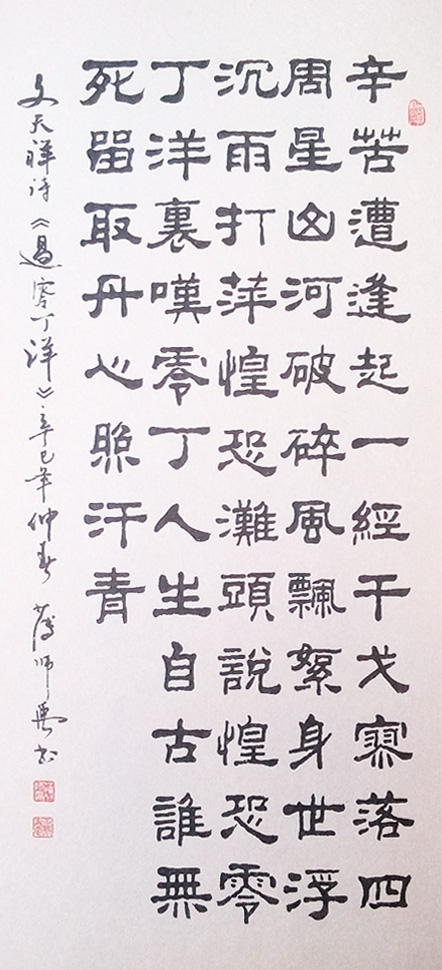 辛苦遭逢起一經干戈寥落四
周星山河破碎風飄絮身世浮
沉雨打萍惶恐灘頭說惶恐零
丁洋裏嘆零丁人生自古誰無
死留取丹心照汗青
文天祥诗《過零丁洋》辛巳年仲春